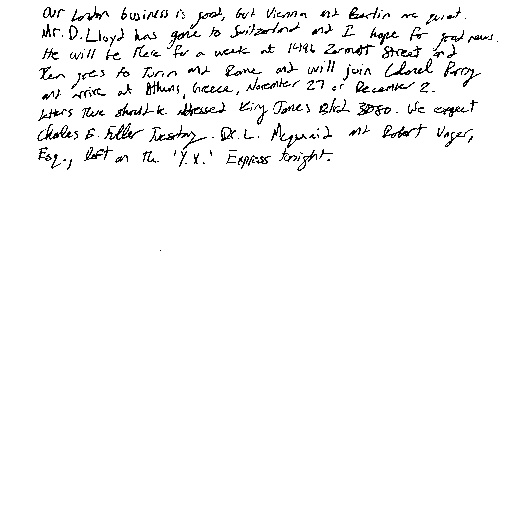 Our London business is good, but Vienna and Berlin are quiet.
Mr. D. Lloyd has gone to Switzerland and I hope for good news.
He will be there for a week at 1496 Zermott Street and
then goes to Turin and Rome and will join Colonel Parry
and arrive at Athens, Greece, November 27 or December 2.
Letters there should be addressed King James Blvd 3080. We expect
Charles E. Fuller Tuesday. Dr. L. McQuaid and Robert Unger,
Esq., left on the 'Y.X.' Express tonight.